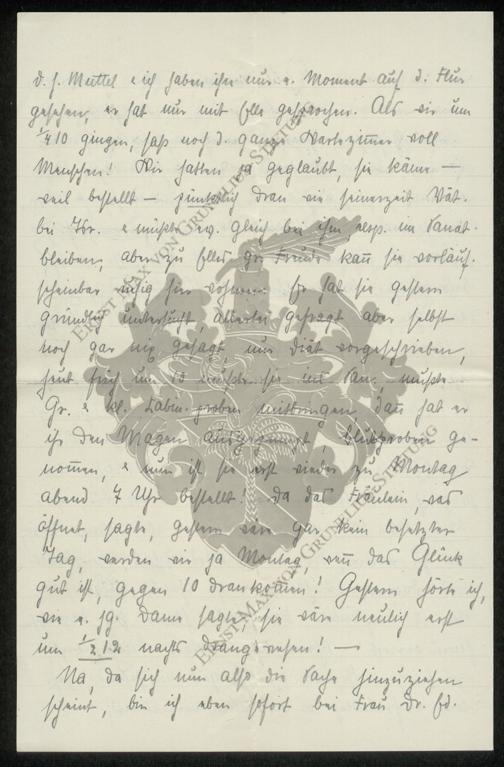 d. h. Muttel & ich haben ihn nur e. Moment auf d. Flur
gesehen, er hat nur mit Elle gesprochen. Als wir um
1/4 10 gingen, saß noch d. ganze Wartezimmer voll
Menschen! Wir hatten ja geglaubt, sie käme —
weil bestellt — pünktlich dran wie seinerzeit Vat.
bei Ihr. & müßte ev. gleich bei ihm resp. im Sanat.
bleiben, aber zu Elles gr. Freude kann sie vorläuf.
scheinbar ruhig hier wohnen. Er hat sie gestern
gründlich untersucht, allerlei gefragt aber selbst
noch gar nix gesagt, nur Diät vorgeschrieben,
heut früh um 10 mußte sie ins San., mußte
Gr. & kl. proben mitbringen, dann hat er
ihr den Magen ausgepumpt, Blutproben ge-
nommen, & nun ist sie erst wieder zu Montag
abend 7 Uhr bestellt! Da das Fräulein, das
öffnet, sagte, gestern wäre gar kein besetzter
Tag, werden wir ja Montag, wenn das Glück
gut ist, gegen 10 drankommen! Gestern hörte ich,
wie e. jg. Dame sagte, sie wäre neulich erst
um 1/2 12 nachts drangewesen! —
Na, da sich nun also die Sache hinzuziehen
scheint, bin ich eben sofort bei Frau Dr. Ed.
ERNST MAX VON GRUNELIUS-STIFTUNG
ERNST MAX VON GRUNELIUS-STIFTUNG